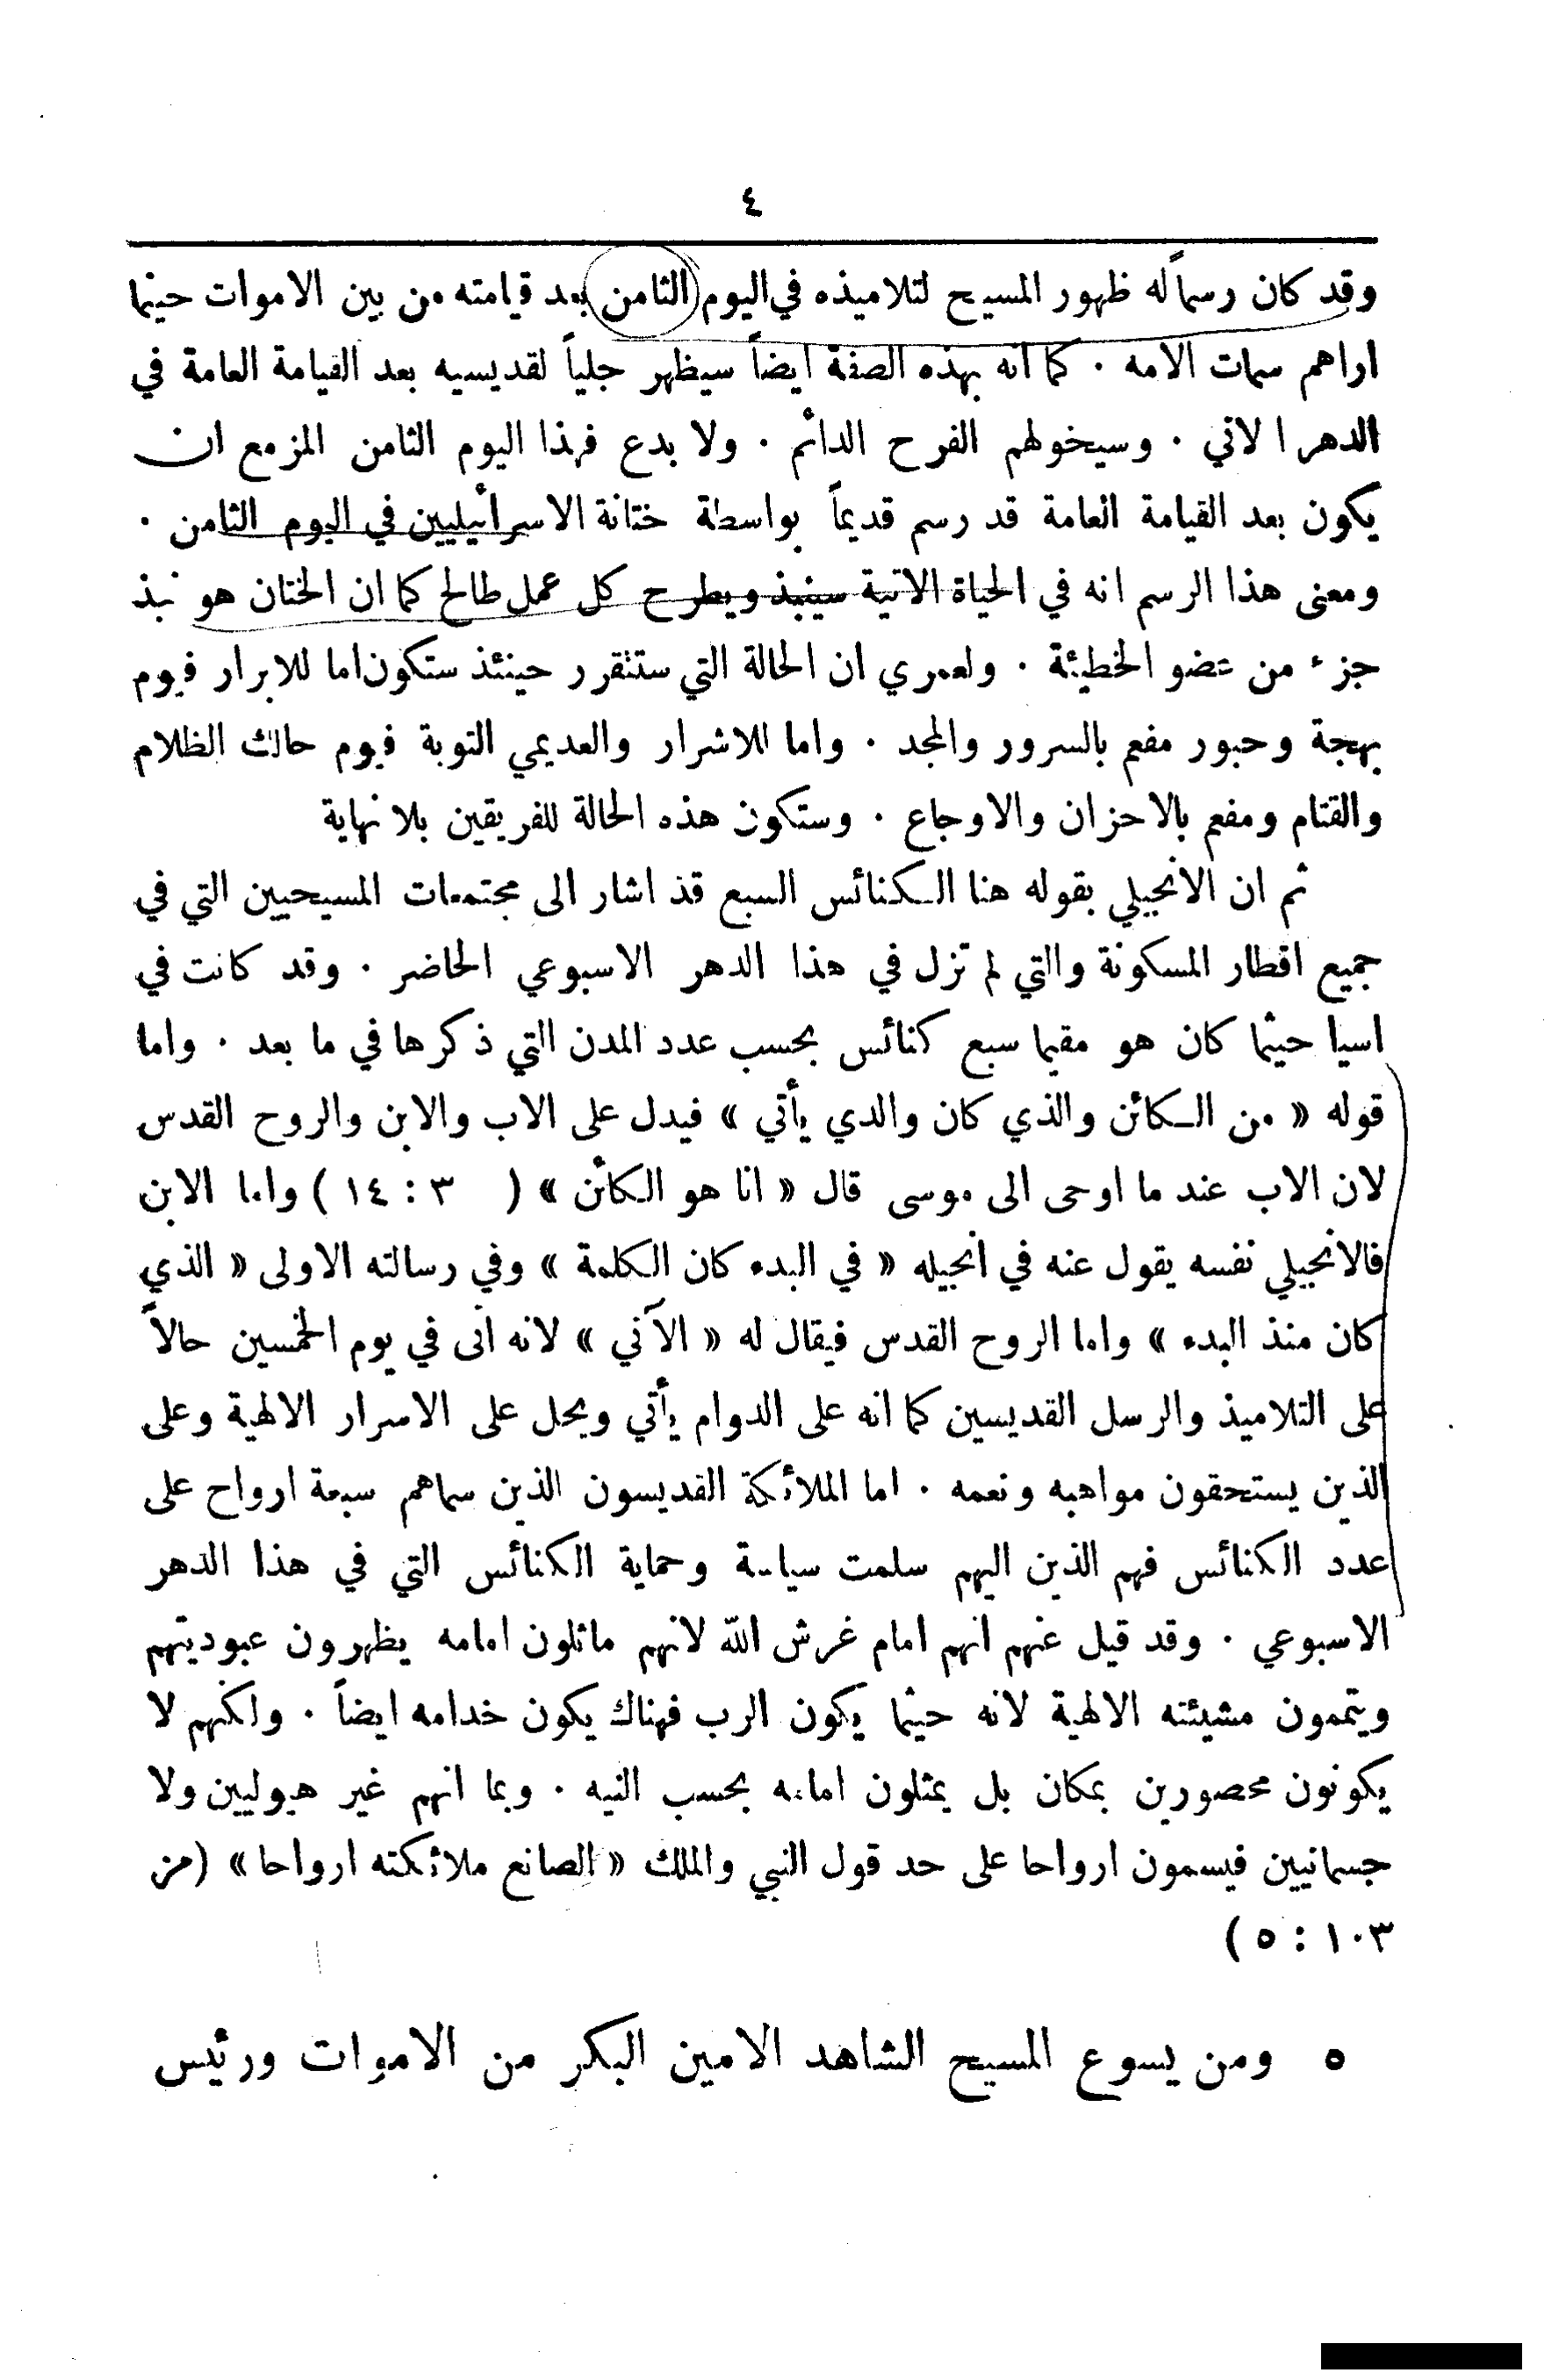 ٤
وقد كان رسماً له ظهور المسيح لتلاميذه في اليوم الثامن بعد قيامته من بين الاموات حينما
اراهم سمات الامه . كما انه بهذه الصفة ايضاً سيظهر جلياً لقديسيه بعد القيامة العامة في
الدهر الاتي . وسيخولهم الفرح الدائم . ولا بدع فهذا اليوم الثامن المزمع ان
يكون بعد القيامة العامة قد رسم قديماً بواسطة ختانة الاسرائيليين في اليوم الثامن .
ومعنى هذا الرسم انه في الحياة الاتية سينبذ ويطرح كل عمل طالح كما ان الختان هو نبذ
جزء من عضو الخطيئة . ولعمري ان الحالة التي ستتقرر حينئذ ستكون اما للابرار فيوم
بهجة وحبور مفعم بالسرور والمجد . واما للاشرار والعديمي التوبة فيوم حالك الظلام
والقتام ومفعم بالاحزان والاوجاع . وستكون هذه الحالة للفريقين بلا نهاية
ثم ان الانجيلي بقوله هنا الكنائس السبع قذ اشار الى مجتمعات المسيحيين التي في
جميع اقطار المسكونة والتي لم تزل في هذا الدهر الاسبوعي الحاضر . وقد كانت في
اسيا حيثما كان هو مقيما سبع كنائس بحسب عدد المدن التي ذكرها في ما بعد . واما
قوله « من الكائن والذي كان والدي يأتي » فيدل على الاب والابن والروح القدس
لان الاب عند ما اوحى الى موسى قال « انا هو الكائن » ( ٣ : ١٤ ) واما الابن
فالانجيلي نفسه يقول عنه في انجيله « في البدء كان الكلمة » وفي رسالته الاولى « الذي
كان منذ البدء » واما الروح القدس فيقال له « الآتي » لانه اتى في يوم الخمسين حالاً
على التلاميذ والرسل القديسين كما انه على الدوام يأتي ويحل على الاسرار الالهية وعلى
الذين يستحقون مواهبه ونعمه . اما الملائكة القديسون الذين سماهم سبعة ارواح على
عدد الكنائس فهم الذين اليهم سلمت سياسة وحماية الكنائس التي في هذا الدهر
الاسبوعي . وقد قيل عنهم انهم امام غرش الله لانهم ماثلون امامه يظهرون عبوديتهم
ويتممون مشيئته الالهية لانه حيثما يكون الرب فهناك يكون خدامه ايضاً . ولكنهم لا
يكونون محصورين بمكان بل يمثلون امامه بحسب النيه . وبما انهم غير هيوليين ولا
جسمانيين فيسمون ارواحا على حد قول النبي والملك « الصانع ملائكته ارواحا » (مز
١٠٣ : ٥ )
٥ ومن يسوع المسيح الشاهد الامين البكر من الاموات ورئيس